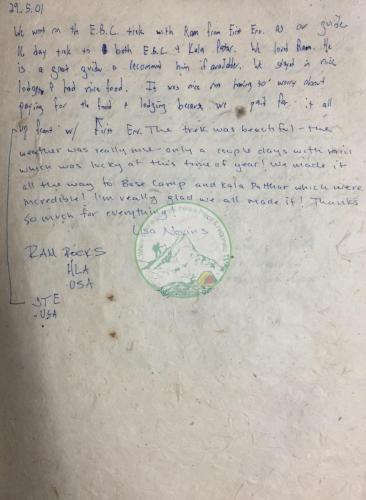 29.5.01
We went on the E.B.C. trek with Ram from First Env. as our guide
16 day trek to both E.B.C & Kala Patar. We loved Ram. He
is a great guide & recommend him if available. We stayed in nice
lodges & had nice food. It was nice not having to worry about
paying for the food & lodging because we paid for it all
up front w/ First Env. The trek was beautiful - the
weather was really nice - only a couple days with
which was lucky at this time of year! We made it
all the way to Base Camp and Kala Patthar which were
incredible! I'm really glad we all made it! Thanks
so much for everything!
Lisa Nevins
RAM ROCKS
HLA
USA
JTE
-USA